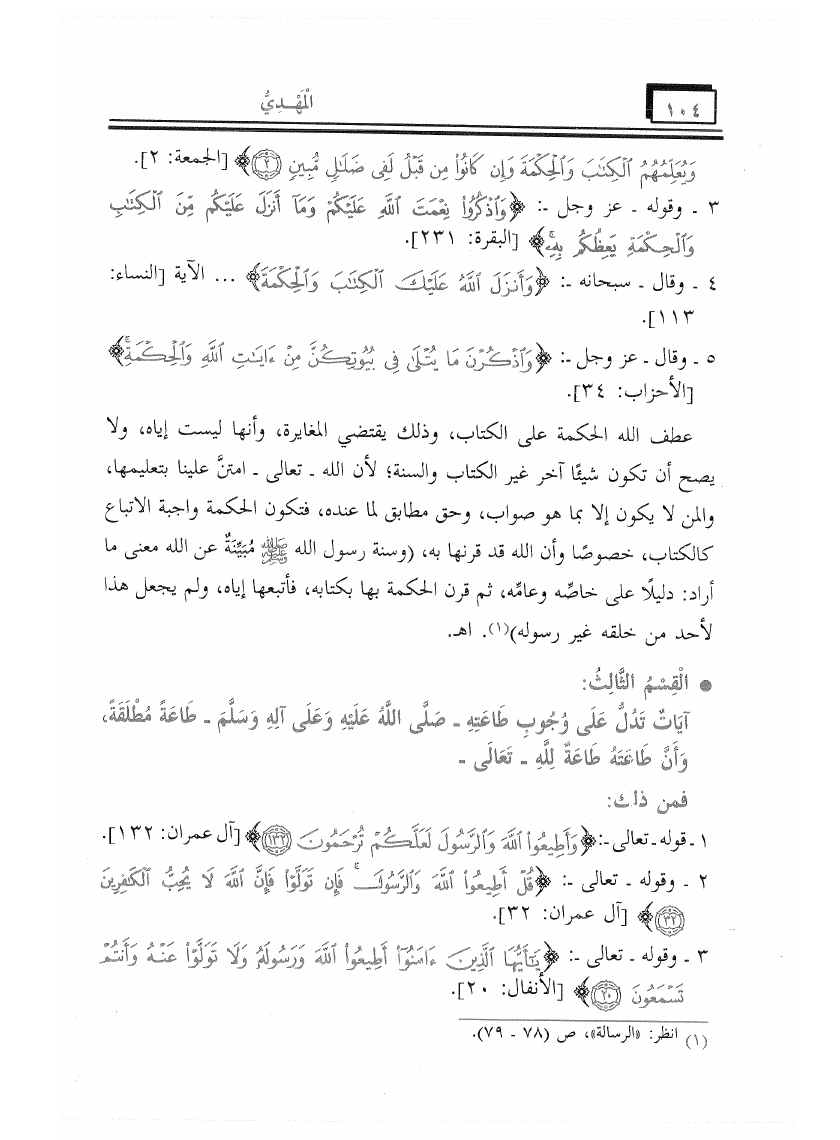 ١٠٤ الْمَهْدِيُّ
وَيُعَلِّمُهُمُ ٱلْكِتَٰبَ وَٱلْحِكْمَةَ وَإِن كَانُوا۟ مِن قَبْلُ لَفِى ضَلَٰلٍ مُّبِينٍ ﴿٢﴾ [الجمعة: ٢].
٣ ـ وقوله ـ عز وجل ـ: ﴿وَٱذْكُرُوا۟ نِعْمَتَ ٱللَّهِ عَلَيْكُمْ وَمَآ أَنزَلَ عَلَيْكُم مِّنَ ٱلْكِتَٰبِ
وَٱلْحِكْمَةِ يَعِظُكُم بِهِۦ﴾ [البقرة: ٢٣١].
٤ ـ وقال ـ سبحانه ـ: ﴿وَأَنزَلَ ٱللَّهُ عَلَيْكَ ٱلْكِتَٰبَ وَٱلْحِكْمَةَ﴾ ... الآية [النساء:
١١٣].
٥ ـ وقال ـ عز وجل ـ: ﴿وَٱذْكُرْنَ مَا يُتْلَىٰ فِى بُيُوتِكُنَّ مِنْ ءَايَٰتِ ٱللَّهِ وَٱلْحِكْمَةِ﴾
[الأحزاب: ٣٤].
عطف الله الحكمة على الكتاب، وذلك يقتضي المغايرة، وأنها ليست إياه، ولا
يصح أن تكون شيئًا آخر غير الكتاب والسنة؛ لأن الله ـ تعالى ـ امتنَّ علينا بتعليمها،
والمن لا يكون إلا بما هو صواب، وحق مطابق لما عنده، فتكون الحكمة واجبة الاتباع
كالكتاب، خصوصًا وأن الله قد قرنها به، (وسنة رسول الله ﷺ مُبَيِّنَةٌ عن الله معنى ما
أراد: دليلًا على خاصِّه وعامِّه، ثم قرن الحكمة بها بكتابه، فأتبعها إياه، ولم يجعل هذا
لأحد من خلقه غير رسوله)(١). اهـ.
● الْقِسْمُ الثَّالِثُ:
آيَاتٌ تَدُلُّ عَلَى وُجُوبِ طَاعَتِهِ ـ صَلَّى اللَّهُ عَلَيْهِ وَعَلَى آلِهِ وَسَلَّمَ ـ طَاعَةً مُطْلَقَةً،
وَأَنَّ طَاعَتَهُ طَاعَةٌ لِلَّهِ ـ تَعَالَى ـ
فمن ذلك:
١ ـ قوله ـ تعالى ـ: ﴿وَأَطِيعُوا۟ ٱللَّهَ وَٱلرَّسُولَ لَعَلَّكُمْ تُرْحَمُونَ ﴿١٣٢﴾ [آل عمران: ١٣٢].
٢ ـ وقوله ـ تعالى ـ: ﴿قُلْ أَطِيعُوا۟ ٱللَّهَ وَٱلرَّسُولَ ۖ فَإِن تَوَلَّوْا۟ فَإِنَّ ٱللَّهَ لَا يُحِبُّ ٱلْكَٰفِرِينَ
﴿٣٢﴾ [آل عمران: ٣٢].
٣ ـ وقوله ـ تعالى ـ: ﴿يَٰٓأَيُّهَا ٱلَّذِينَ ءَامَنُوٓا۟ أَطِيعُوا۟ ٱللَّهَ وَرَسُولَهُۥ وَلَا تَوَلَّوْا۟ عَنْهُ وَأَنتُمْ
تَسْمَعُونَ ﴿٢٠﴾ [الأنفال: ٢٠].
(١) انظر: «الرسالة»، ص (٧٨ ـ ٧٩).